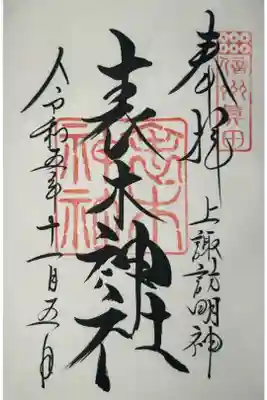 奉拝
上諏訪明神
表木神社
令和五年十一月五日